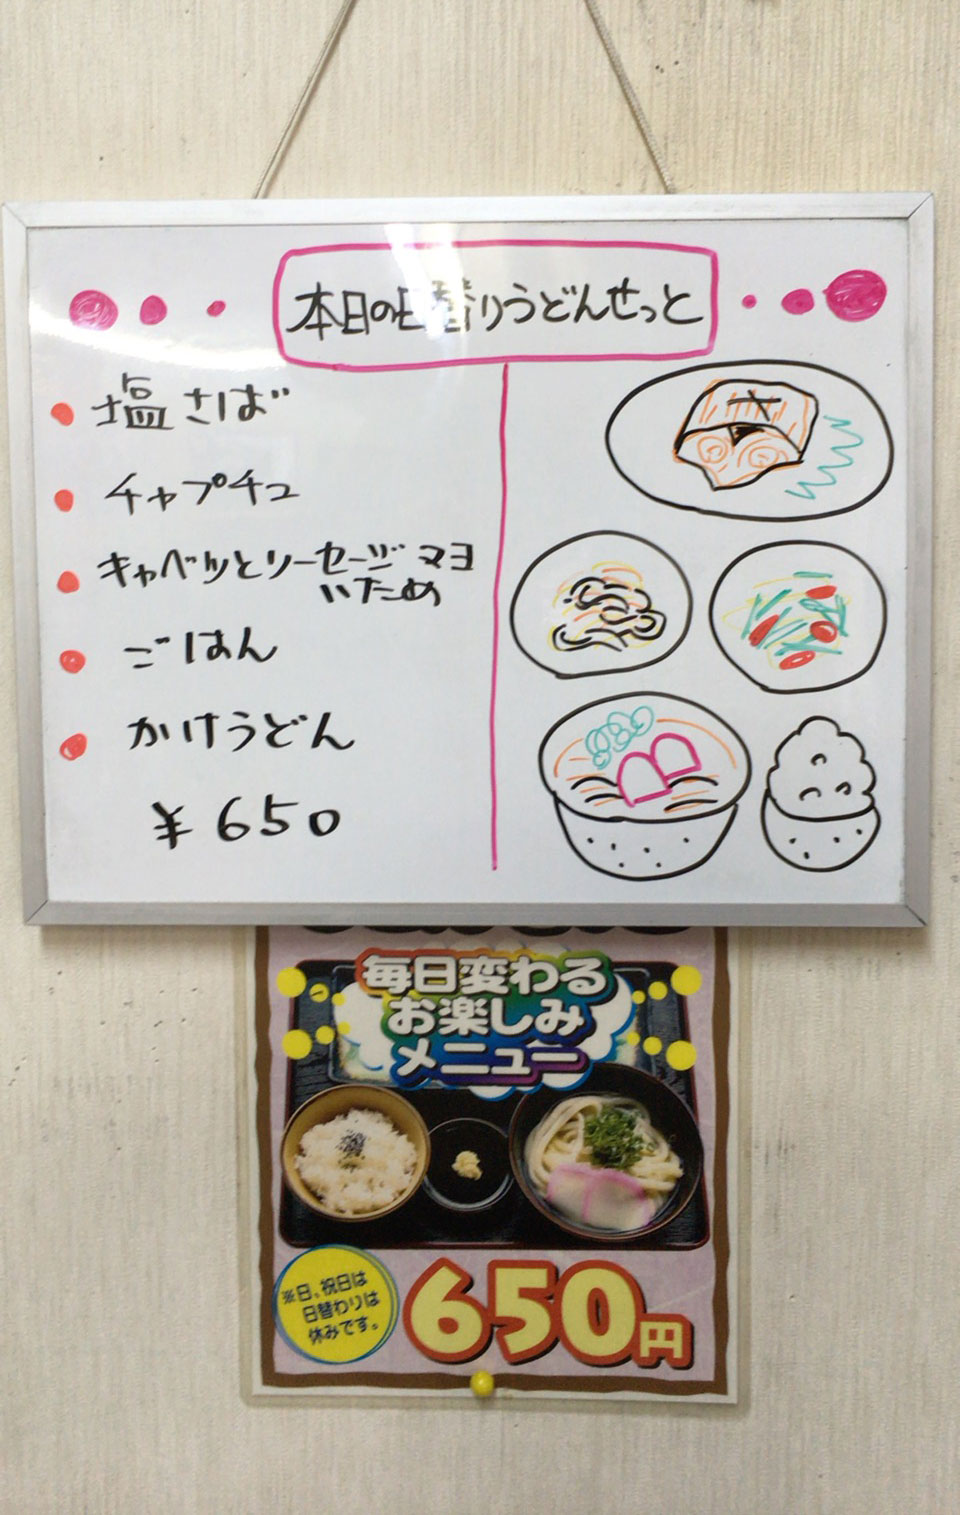 本日の日替りうどんせっと
塩さば
チャプチュ
キャベツとソーセージマヨ
いため
ごはん
かけうどん
¥650
毎日変わる
お楽しみ
メニュー
※日、祝日は
日替わりは
休みです。
650円